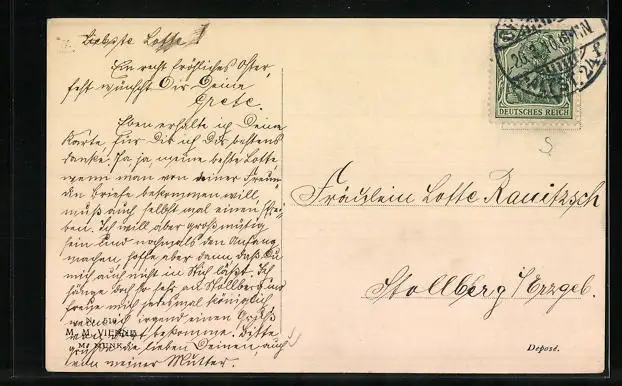 Liebste Lotte!
Ein recht fröhliches Oster-
fest wünscht Dir Deine
Grete.
Eben erhalte ich Deine
Karte, für die ich Dir bestens
danke. Ja, ja, meine beste Lotte
wenn man von seiner Freun-
din Briefe bekommen will,
muß auch selbst mal einen schrei-
ben. Ich will aber großmütig
sein und nochmals den Anfang
machen, hoffe aber dann, daß Du
mich auch nicht im Stich läßt. Ich
hänge doch so sehr an Stollberg und
freue mich jedesmal königlich
wenn ich irgend einen Gruß
von dort bekomme. Bitte
grüße die lieben Deinen, auch
von meiner Mutter.
M. M. VIENNE
M. MUNK
DEUTSCHES REICH
Fräulein Lotte Ranitzsch
Stollberg i/Erzgeb.
Deposé.